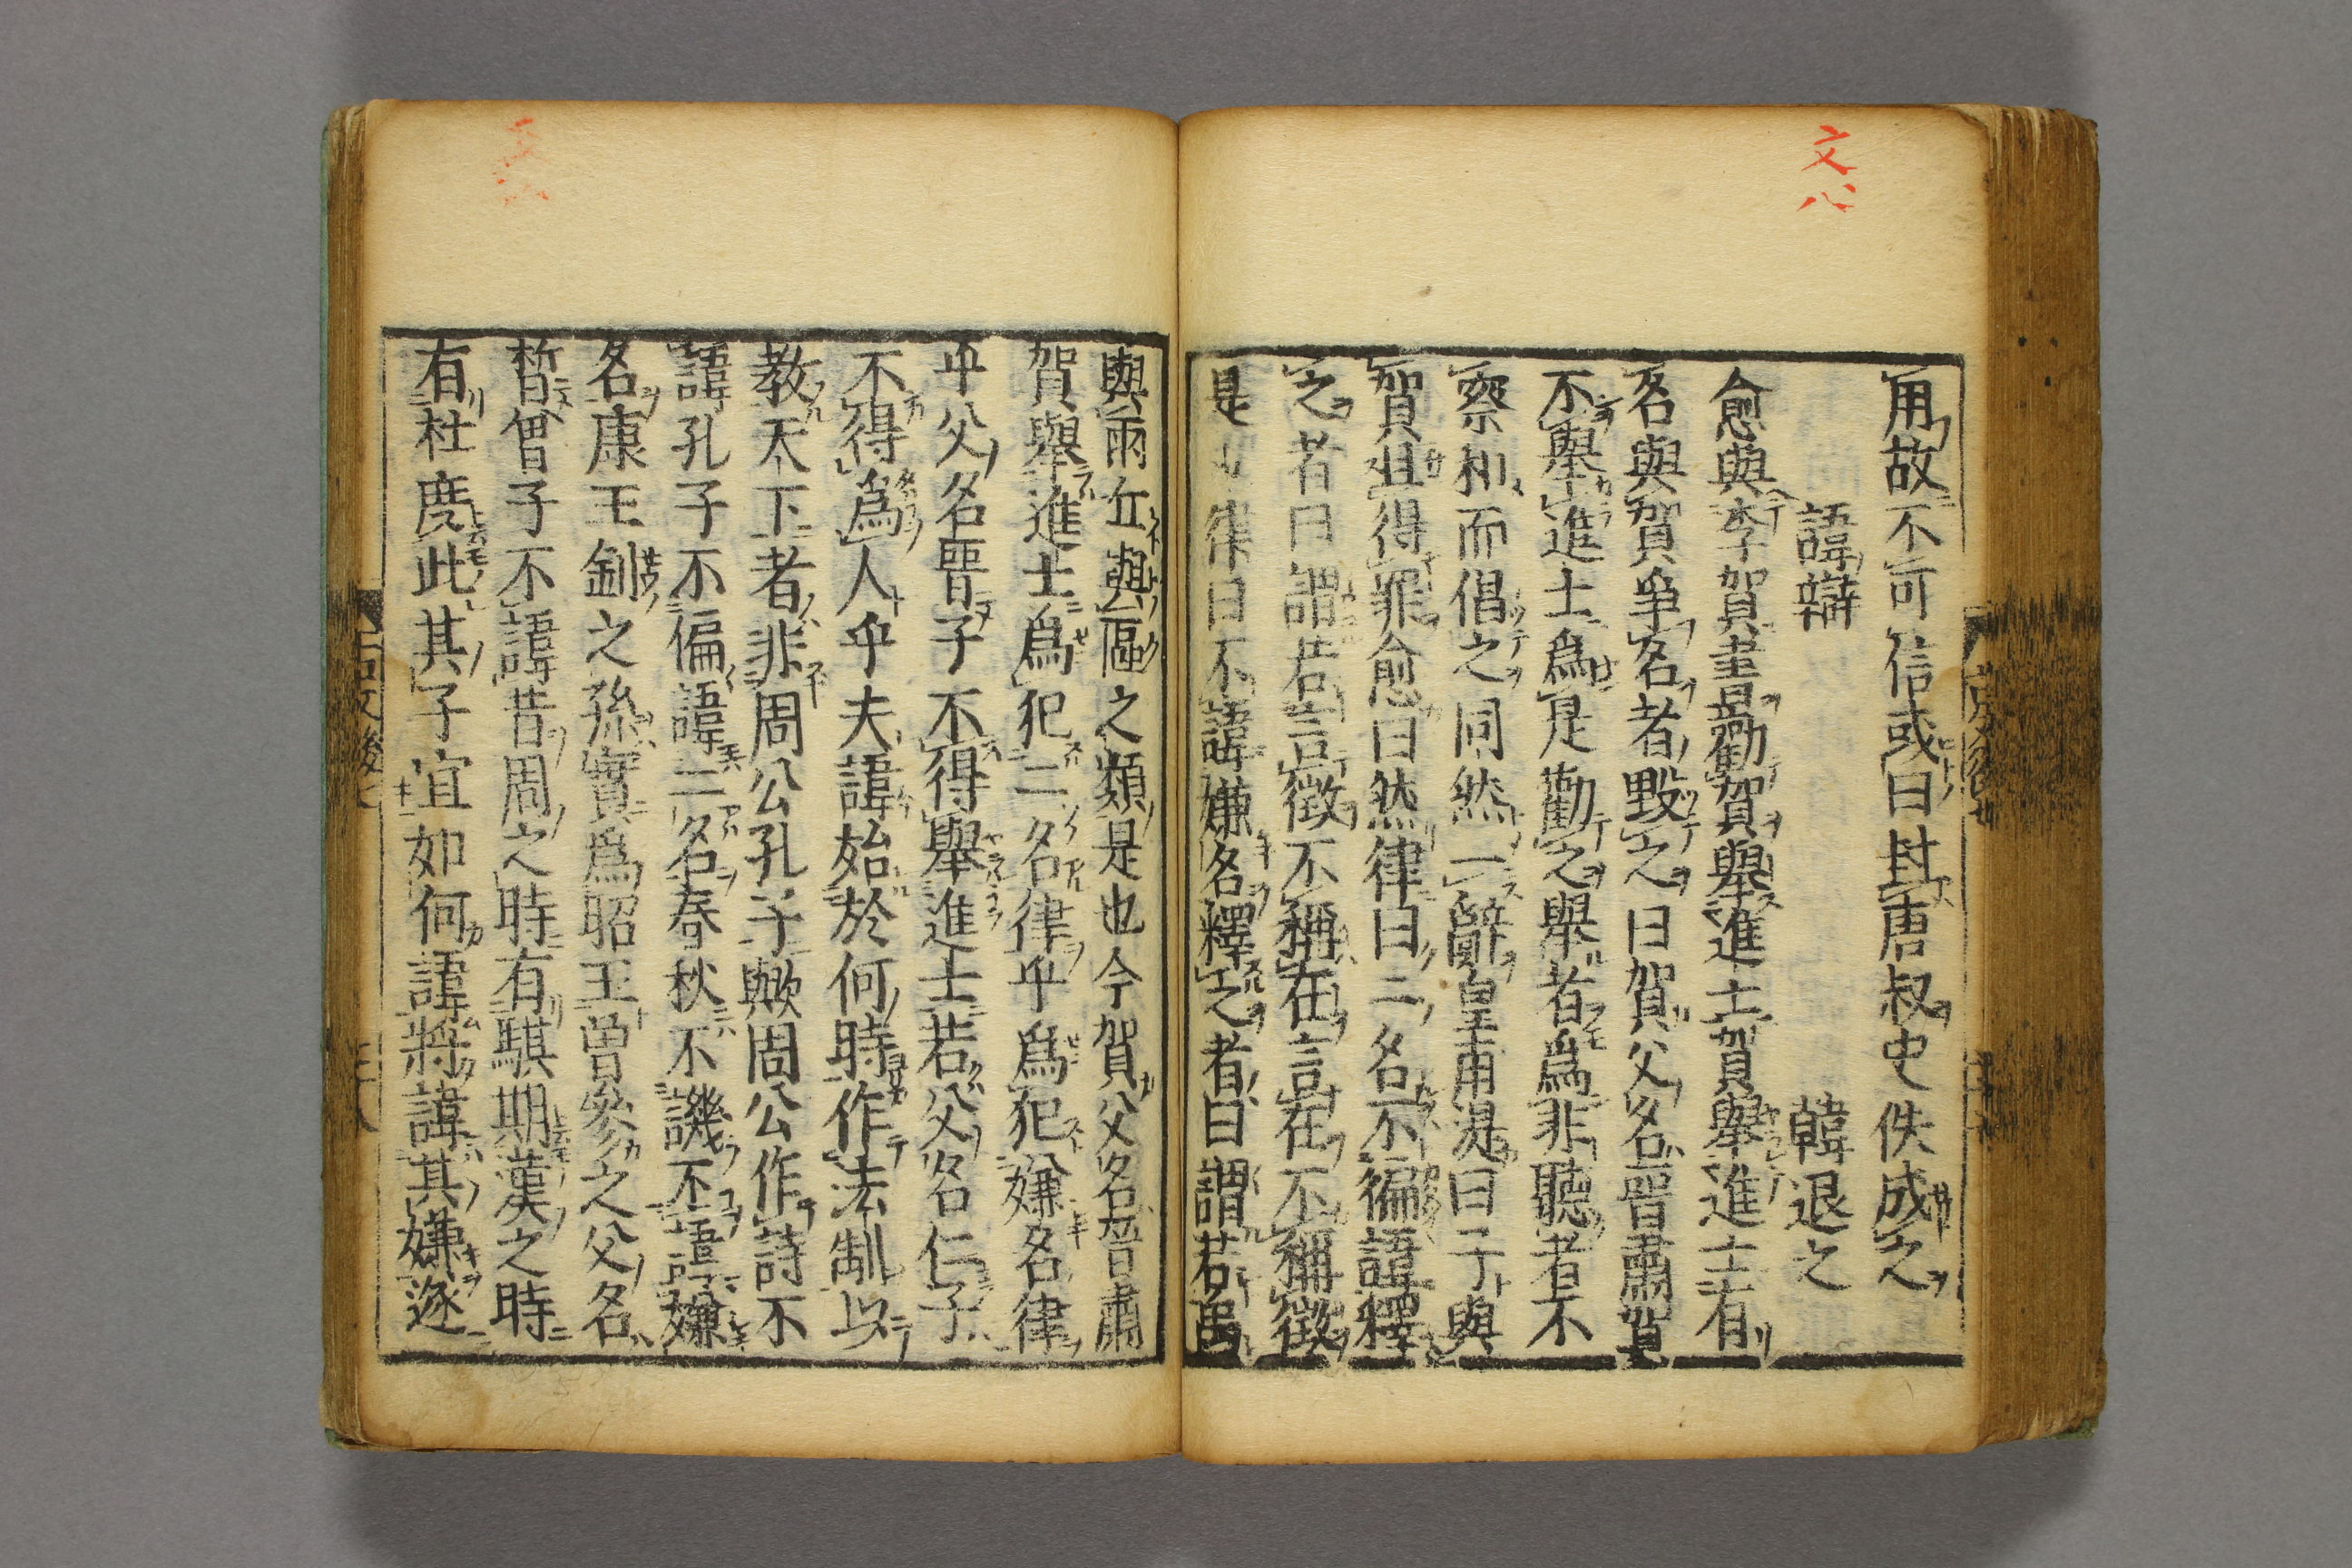 文八
用故不可信或曰封唐叔史佚成之
諱辯　韓退之
愈與李賀書勸賀舉進士賀舉進士有
名與賀爭名者毀之曰賀父名晉肅賀
不舉進士為是勸之舉者為非聽者不
察和而倡之同然一辭皇甫湜曰子與
賀且得罪愈曰然律曰二名不徧諱釋
之者曰謂若言徵不稱在言在不稱徵
是也律曰不諱嫌名釋之者曰謂若禹
與雨丘與蓲之類是也今賀父名晉肅
賀舉進士為犯二名律乎為犯嫌名律
乎父名晉子不得舉進士若父名仁子
不得為人乎夫諱始於何時作法制以
教天下者非周公孔子歟周公作詩不
諱孔子不偏諱二名春秋不譏不諱嫌
名康王釗之孫實為昭王曾參之父名
皙曾子不諱昔周之時有騏期漢之時
有杜度此其子宜如何諱將諱其嫌遂